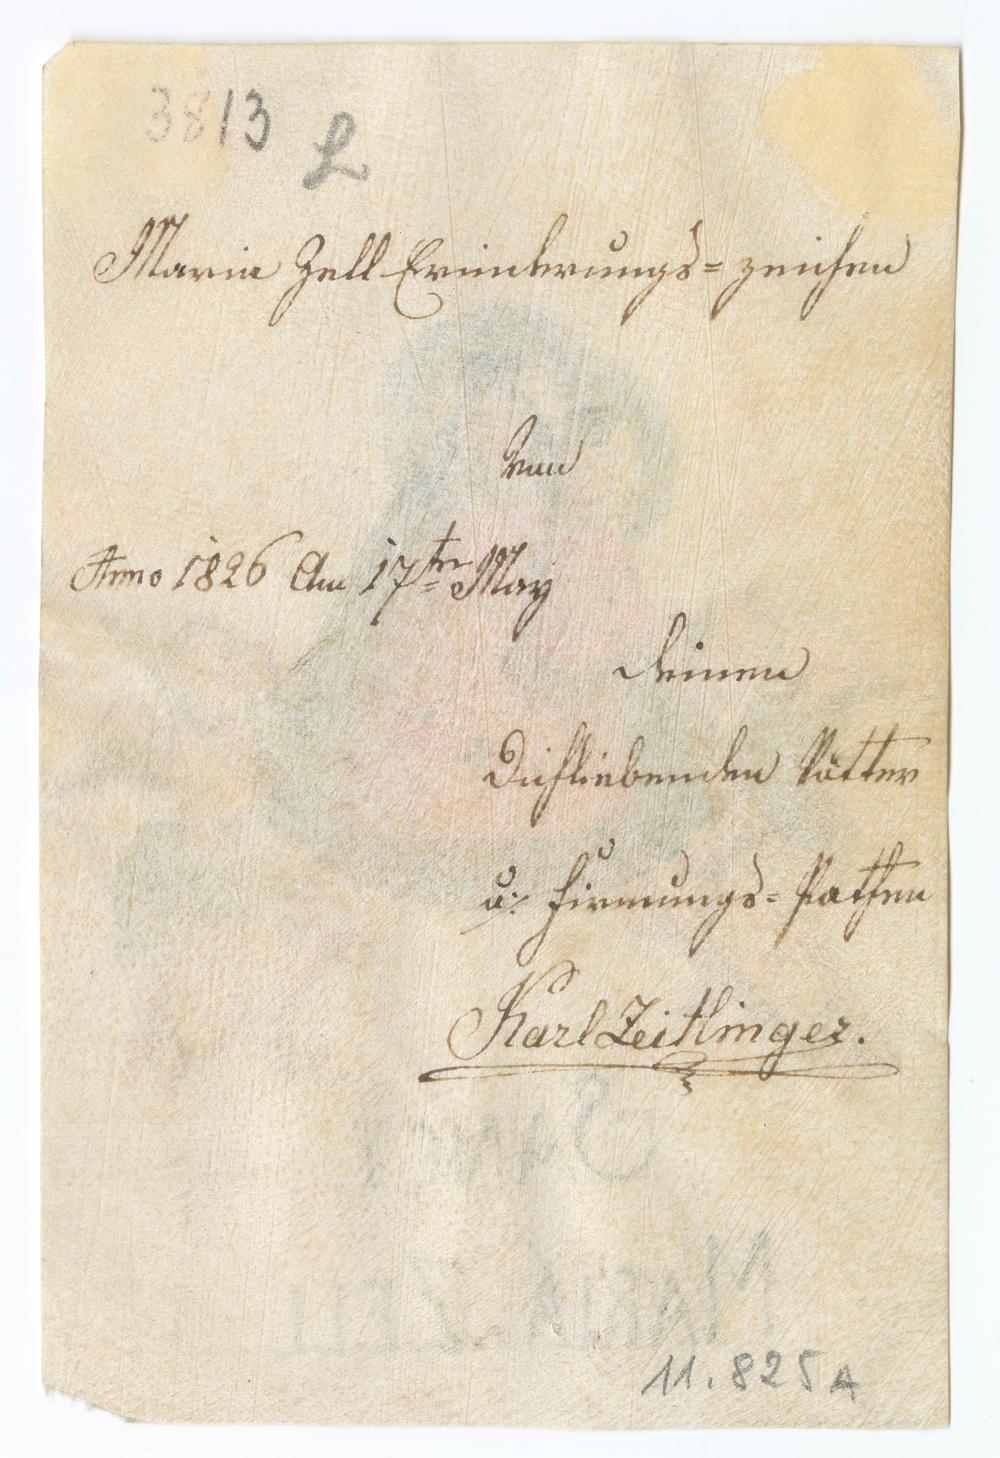 3813 L
Maria Zell Erinderungs= zeichen
von
Anno 1826 Am 17ten May
deinen
Dichliebenden Vötter
u: Firmungs= Pathen
Karl Zeitlinger.
SANCT
MARIA ZELL
11.825 A